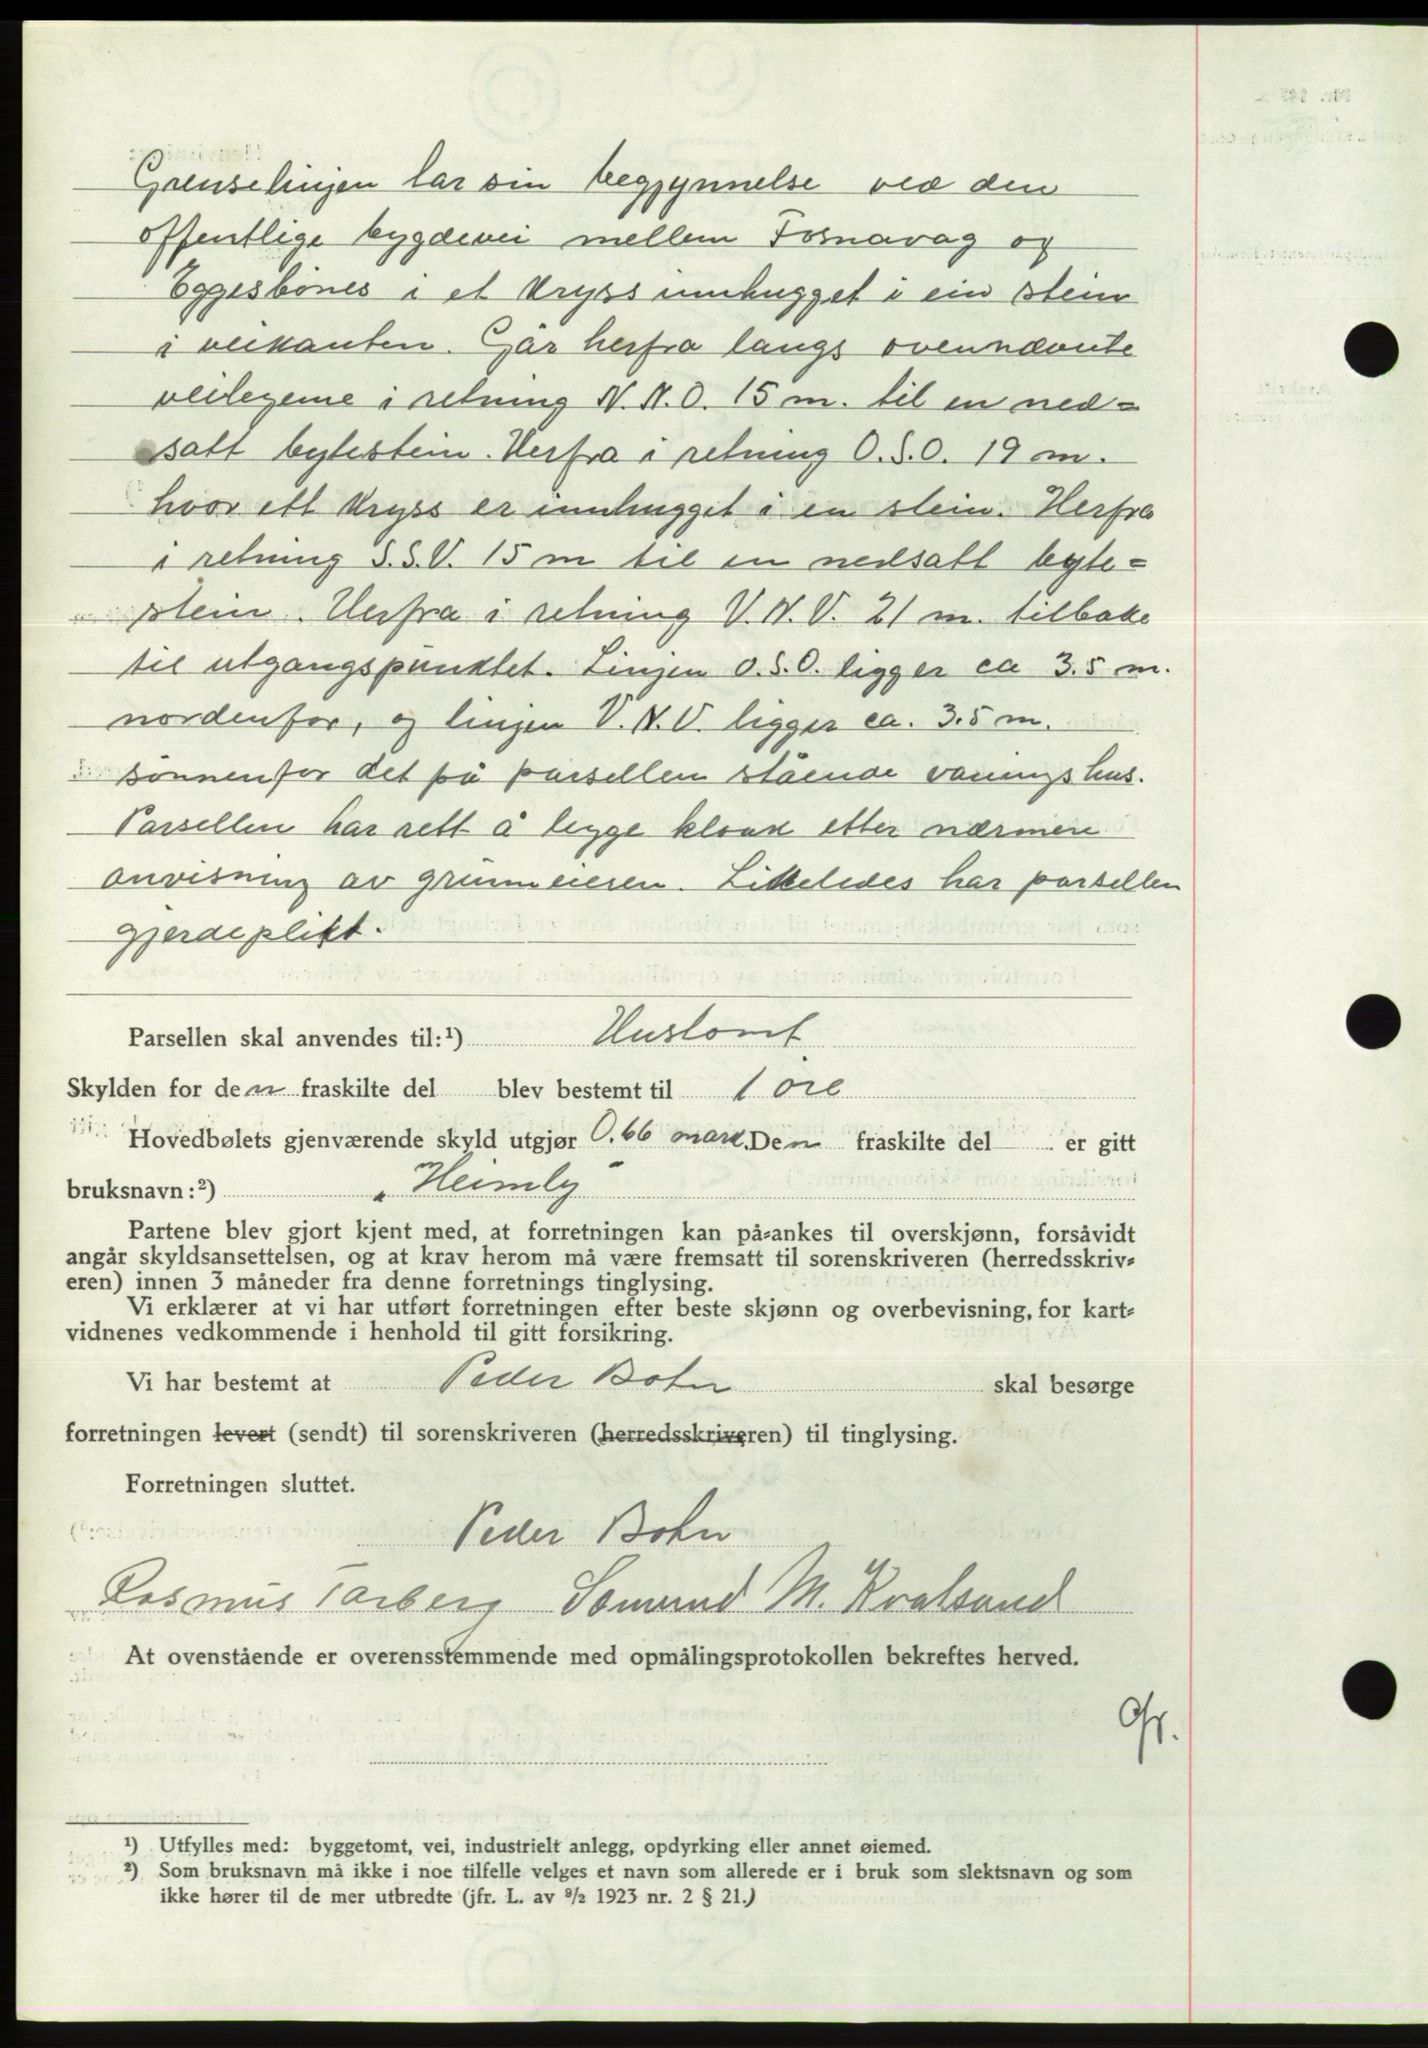 Grenselinjen tar sin begynnelse ved den
offentlige bygdevei mellem Fosnavag og
Eggesbönes i et kryss innhugget i ein stein
i veikanten. Går herfra langs ovennævnte
veilegeme i retning N.N.O. 15 m. til en ned=
satt bytestein. Herfra i retning O.S.O. 19 m.
hvor ett kryss er innhugget i en stein. Herfra
i retning S.S.V. 15 m til en nedsatt byte=
stein. Herfra i retning V.N.V. 21 m. tilbake
til utgangspunktet. Linjen O.S.O. ligger ca 3.5 m.
nordenfor, og linjen V.N.V. ligger ca. 3.5 m.
sönnenfor det på parsellen stående vaningshus.
Parsellen har rett å legge kloak etter nærmere
anvisning av grunneieren. Likeledes har parsellen
gjerdeplikt.
Parsellen skal anvendes til:¹) Hustomt
Skylden for den fraskilte del blev bestemt til 1 öre
Hovedbølets gjenværende skyld utgjør 0.66 mark. Den fraskilte del er gitt
bruksnavn:²) "Heimly"
Partene blev gjort kjent med, at forretningen kan på=ankes til overskjønn, forsåvidt
angår skyldsansettelsen, og at krav herom må være fremsatt til sorenskriveren (herredsskriv=
eren) innen 3 måneder fra denne forretnings tinglysing.
Vi erklærer at vi har utført forretningen efter beste skjønn og overbevisning, for kart=
vidnenes vedkommende i henhold til gitt forsikring.
Vi har bestemt at Peder Bohn skal besørge
forretningen levert (sendt) til sorenskriveren (herredsskriveren) til tinglysing.
Forretningen sluttet.
Peder Bohn
Rasmus Tarberg Sämund M. Kvalsund
At ovenstående er overensstemmende med opmålingsprotokollen bekreftes herved.
¹) Utfylles med: byggetomt, vei, industrielt anlegg, opdyrking eller annet øiemed.
²) Som bruksnavn må ikke i noe tilfelle velges et navn som allerede er i bruk som slektsnavn og som
ikke hører til de mer utbredte (jfr. L. av ⁹/₂ 1923 nr. 2 § 21.)